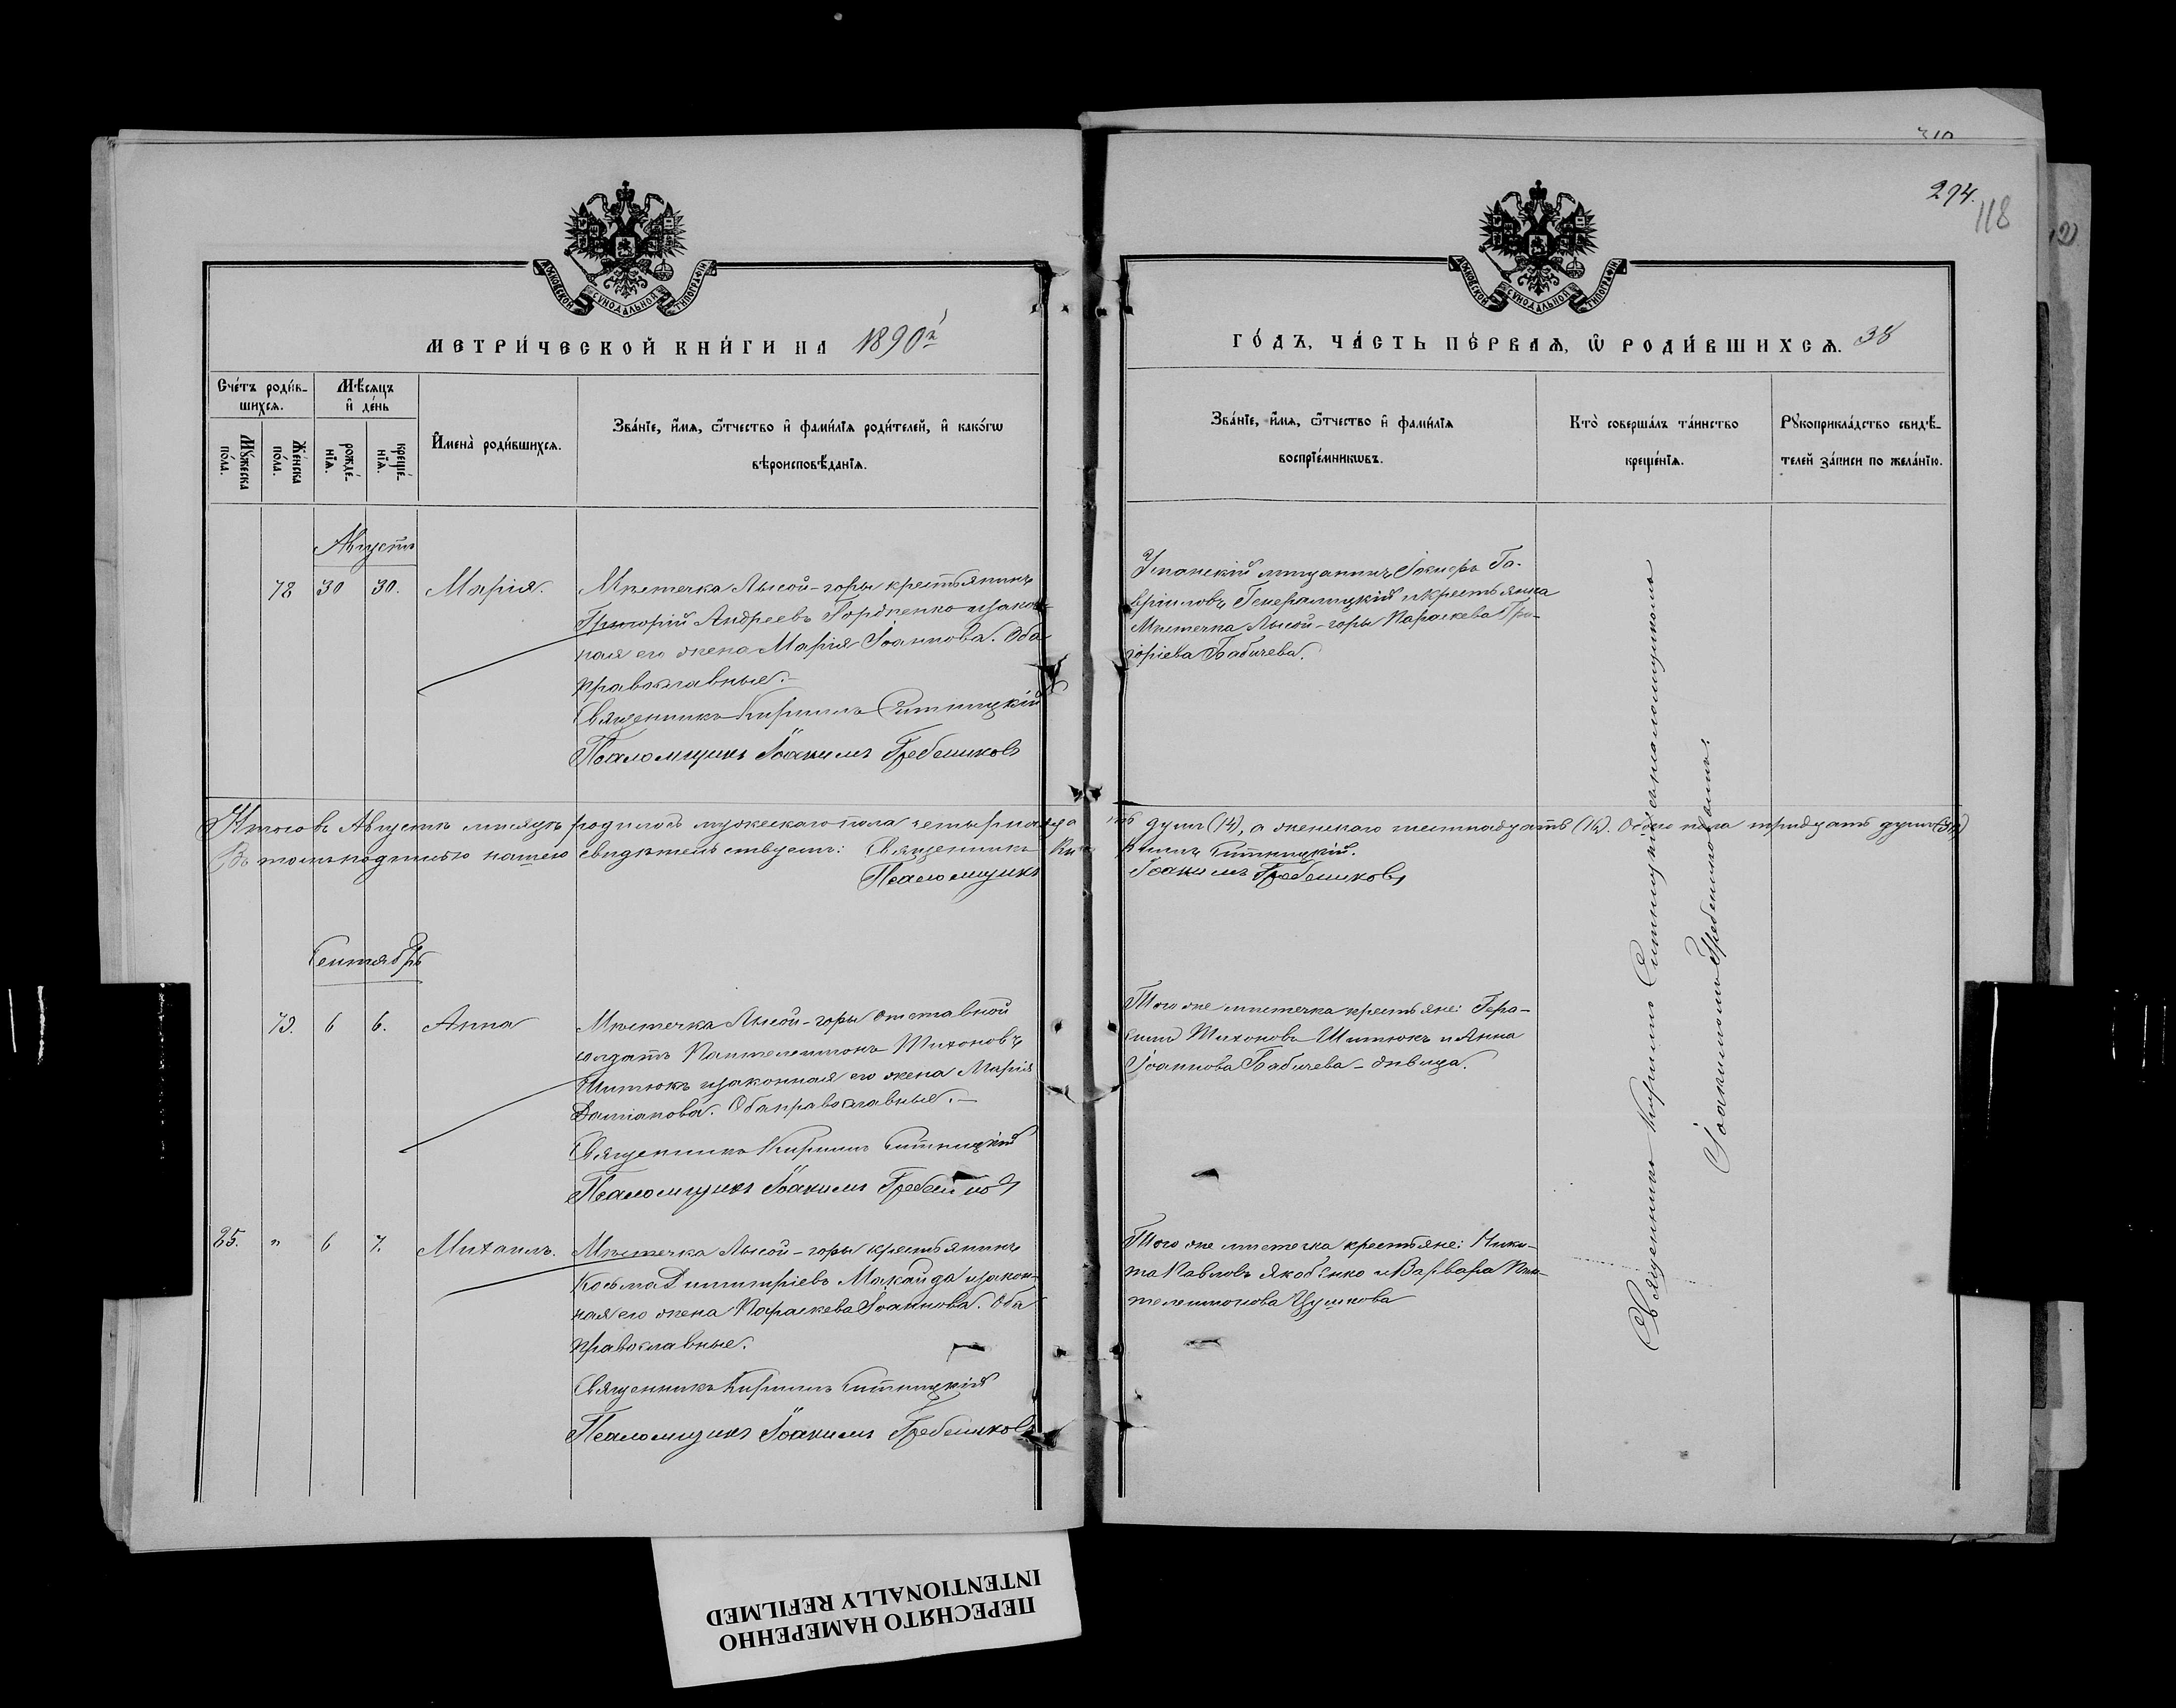 294.
118
МОСКОВСКОЙ СѴНОДАЛЬНОЙ ТИПОГРАФІИ
МОСКОВСКОЙ СѴНОДАЛЬНОЙ ТИПОГРАФІИ
МЕТРИ́ЧЕСКОЙ КНИ́ГИ НА 1890й
ГО́ДЪ, ЧА́СТЬ ПЕ́РВАѦ, Ѿ РОДИ́ВШИХСѦ. 38
Сче́тъ роди́в-
шихсѧ.
Мѣ́сѧцъ
и҆ де́нь
Мꙋ́жеска
по́ла.
Же́нска
по́ла.
рожде́-
нїѧ.
креще́-
нїѧ.
И҆мена̀ роди́вшихсѧ.
Зва́нїе, и҆́мѧ, ѻ҆́тчество и҆ фами́лїѧ роди́телей, и҆ како́гѡ
вѣроисповѣ́данїѧ.
Зва́нїе, и҆́мѧ, ѻ҆́тчество и҆ фами́лїѧ
воспрїе́мникѡвъ.
Кто̀ соверша́лъ та́инство
креще́нїѧ.
Рꙋкоприкла́дство свидѣ́-
телей за́писи по жела́нїю.
Августъ
78 30 30. Марія.
Мѣстечка Лысой-горы крестьянинъ
Григорій Андреевъ Гордѣенко и закон-
ная его жена Марія Іоаннова. Оба
православные.-
Священникъ Кириллъ Ситницкій
Псаломщикъ Іоакимъ Гребешковъ
Уманскій мѣщанинъ Іосифъ Га-
вріиловъ Генералицкій и крестьянка
Мѣстечка Лысой-горы Параскева Гри-
горіева Бабичева.
Итого въ Августѣ мѣсяцѣ родилось мужескаго пола четырнадцать душъ (14), а женскаго шестнадцать (16). Обоего пола тридцать душъ (30)
Въ томъ подписью нашею свидѣтельствуемъ: Священникъ Кириллъ Ситницкій.
Псаломщикъ Іоакимъ Гребешковъ
Сентябрь
79. 6 6. Анна
Мѣстечка Лысой-горы отставной
солдатъ Пантелеимонъ Тихоновъ
Шитюкъ и законная его жена Марія
Даміанова. Оба православные.-
Священникъ Кириллъ Ситницкій
Псаломщикъ Іоакимъ Гребешковъ
Того же мѣстечка крестьяне: Гера-
симъ Тихоновъ Шитюкъ и Анна
Іоаннова Бабичева - дѣвица.
85. " 6 7. Михаилъ.
Мѣстечка Лысой-горы крестьянинъ
Косьма Димитріевъ Макайда и закон-
ная его жена Параскева Іоаннова. Оба
православные.
Священникъ Кириллъ Ситницкій
Псаломщикъ Іоакимъ Гребешковъ
Того же мѣстечка крестьяне: Ники-
та Павловъ Якобенко и Варвара Пан-
телеимонова Цушкова
Священникъ Кириллъ Ситницкій съ псаломщикомъ
Іоакимомъ Гребешковымъ.
ПЕРЕСНЯТО НАМЕРЕННО
INTENTIONALLY REFILMED